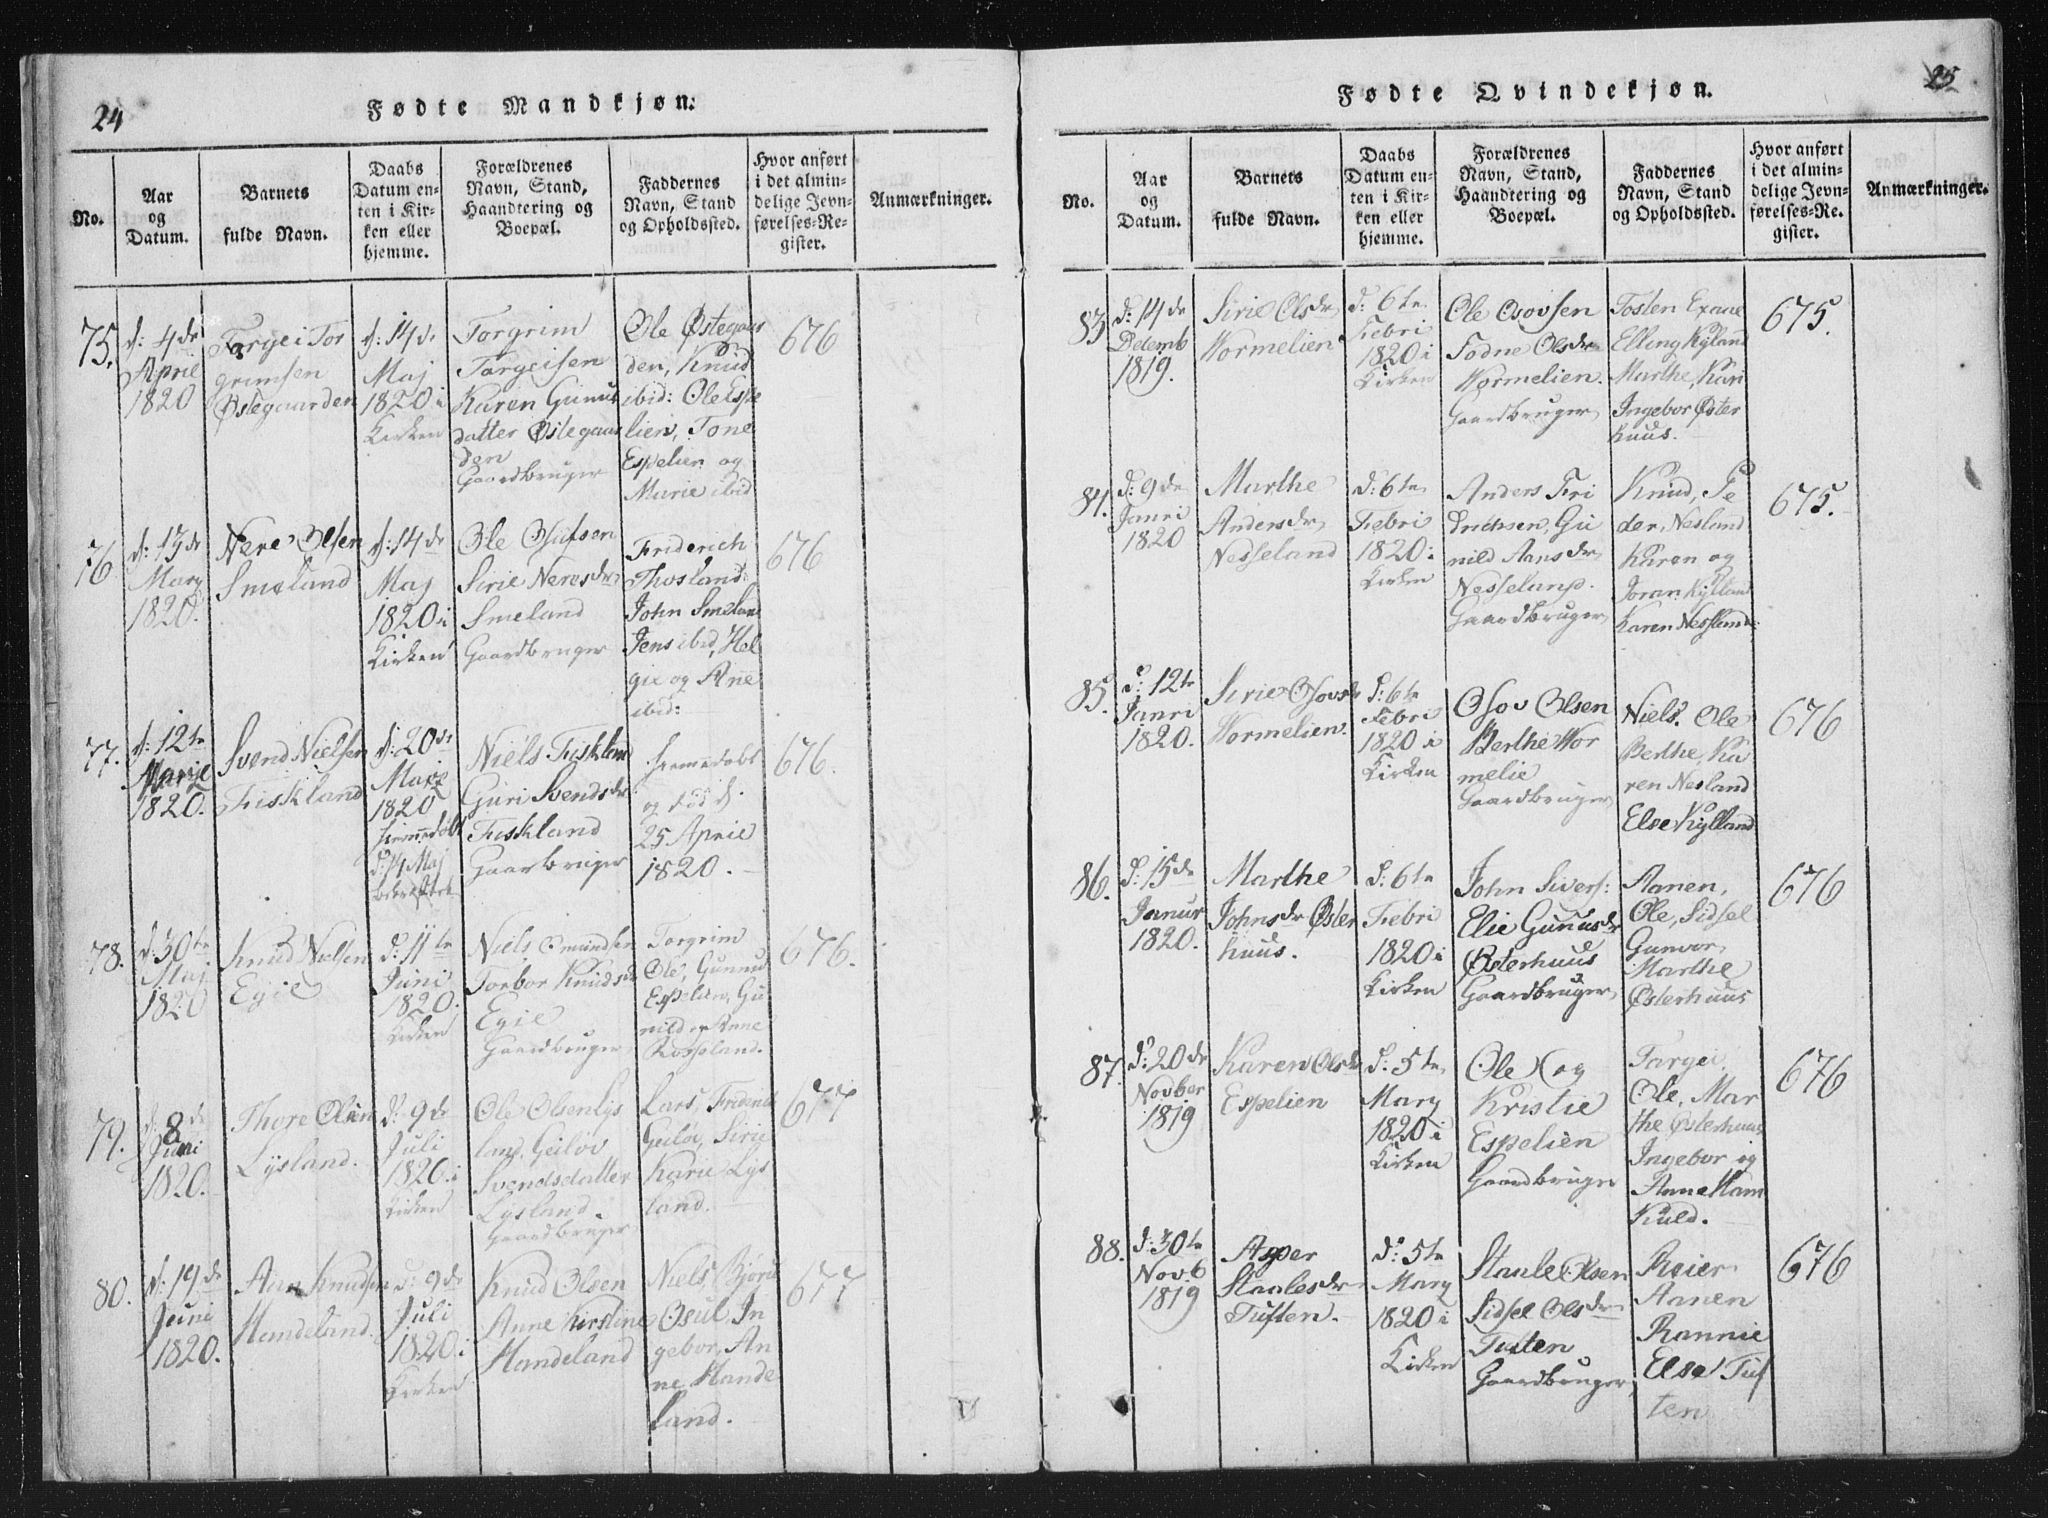 24
Fødte Mandkjøn.
No.
Aar
og
Datum.
Barnets
fulde Navn.
Daabs
Datum en-
ten i Kir-
ken eller
hjemme.
Forældrenes
Navn, Stand,
Haandtering og
Boepæl.
Faddernes
Navn, Stand
og Opholdssted.
Hvor anført
i det almin-
delige Jevn-
førelses-Re-
gister.
Anmærkninger.
75.
d: 4de
April
1820
Torgei Tor
grimsen
Østegaarden
d: 14de
Maj
1820 i
Kirken
Torgrim
Torgeisen
Karen Gunus
datter Østegaar
den
Gaardbruger
Ole Østegaar
den, Knud
ibid: Ole Espe
lien, Tone
Espelien og
Marie ibid
676
76
Nere Olsen
Smeland
1820.
d: 14de
Maj
1820 i
Kirken
Ole Osufsen
Sirie Neresdr
Smeland
Gaardbruger
Friderich
Thosland:
John Smelan
Jens ibid, Hel
gie og Anne
ibid:
676
77.
d: 12te
1820.
Svend Nielsen
Fiskland
d: 20de
1820
hjemmedøbt
d: 14 Maj
bekræftet
Niels Fiskland
Guri Svendsdr
Fiskland
Gaarbruger
hjemmedøbt
og død d:
25 April
1820.
676.
78.
d: 30te
Maj
1820
Knud Nielsen
Egie
d: 11te
Juni
1820.
Kirken
Niels Omundsen
Torbor Knudsdr
Egie
Gaardbruger
Torgrim
Ole, Gunnu
Espelien, Gu
nild og Anne
Rosseland.
676.
79.
d: 8de
Juni
1820.
Thore Olsen
Lysland.
d: 9de
Juli
1820 i
Kirken
Ole Olsen Lys
land, Geiløv
Svendsdatter
Lysland.
Gaardbruger
Lars, Friderich
Geiløv, Sirie
Karie Lys
land.
677
80.
d: 19de
Juni
1820.
Knudsen
Handeland.
d: 9de
Juli
1820 i
Kirken
Knud Olsen
Anne Kirstine
Handeland
Niels, Bjøru
Osul, In
gebor, An
ne Hande
land.
677
25
Fødte Qvindekjøn.
No.
Aar
og
Datum.
Barnets
fulde Navn.
Daabs
Datum en-
ten i Kir-
ken eller
hjemme.
Forældrenes
Navn, Stand,
Haandtering og
Boepæl.
Faddernes
Navn, Stand
og Opholdssted.
Hvor anført
i det almin-
delige Jevn-
førelses-Re-
gister.
Anmærkninger.
83
d: 14de
Decemb
1819.
Sirie Olsdr
Vormelien
d: 6te
Febri
1820 i
Kirken
Ole Osovsen
Todne Olsdr
Vormelien.
Gaardbruger
Tosten Exane
Elling Kyland
Marthe, Kari
Ingebor Øster
huus.
675.
84.
d: 9de
Janri
1820
Marthe
Andersdr
Nesseland
d: 6te
Febri
1820 i
Kirken
Anders Fri
drichsen, Gu
nild Aansdr
Nesseland.
Gaardbruger
Knud, Pe
der, Nesland
Karen og
Joran Kylland
Karen Nesland:
675.
85.
d: 12te
Janri
1820.
Sirie Osovsdr
Vormelien.
d: 6te
Febri
1820 i
Kirken
Osov Olsen
Berthe Vor
melie
Gaardbruger
Niels. Ole
Berthe, Ka
ren Nesland
Else Kylland
676
86.
d: 15de
Janur
1820.
Marthe
Johnsdr Øster
huus.
d: 6te
Febri
1820 i
Kirken
John Sivers:
Elie Gunusdr
Østerhuus
Gaardbruger
Aanen,
Ole, Sidsel
Gunvor,
Marthe
Østerhuus
676
87.
d: 20de
Novber
1819
Karen Olsdr
Espelien
d: 5te
Marz
1820 i
Kirken
Ole og
Kristie
Espelien
Gaardbruger
Targei
Ole, Mar
the Østerhuus
Ingebor og
Anne Ham
kuld.
676
88.
d: 30te
Novb
1819
Asper
Staalesdr
Tuften.
d: 5te
Marz
1820 i
Kirken
Staale Olsen
Sidsel Olsdr
Tuften
Gaardbruger,
Reier
Aanen
Rannie
Else Tuf
ten
676